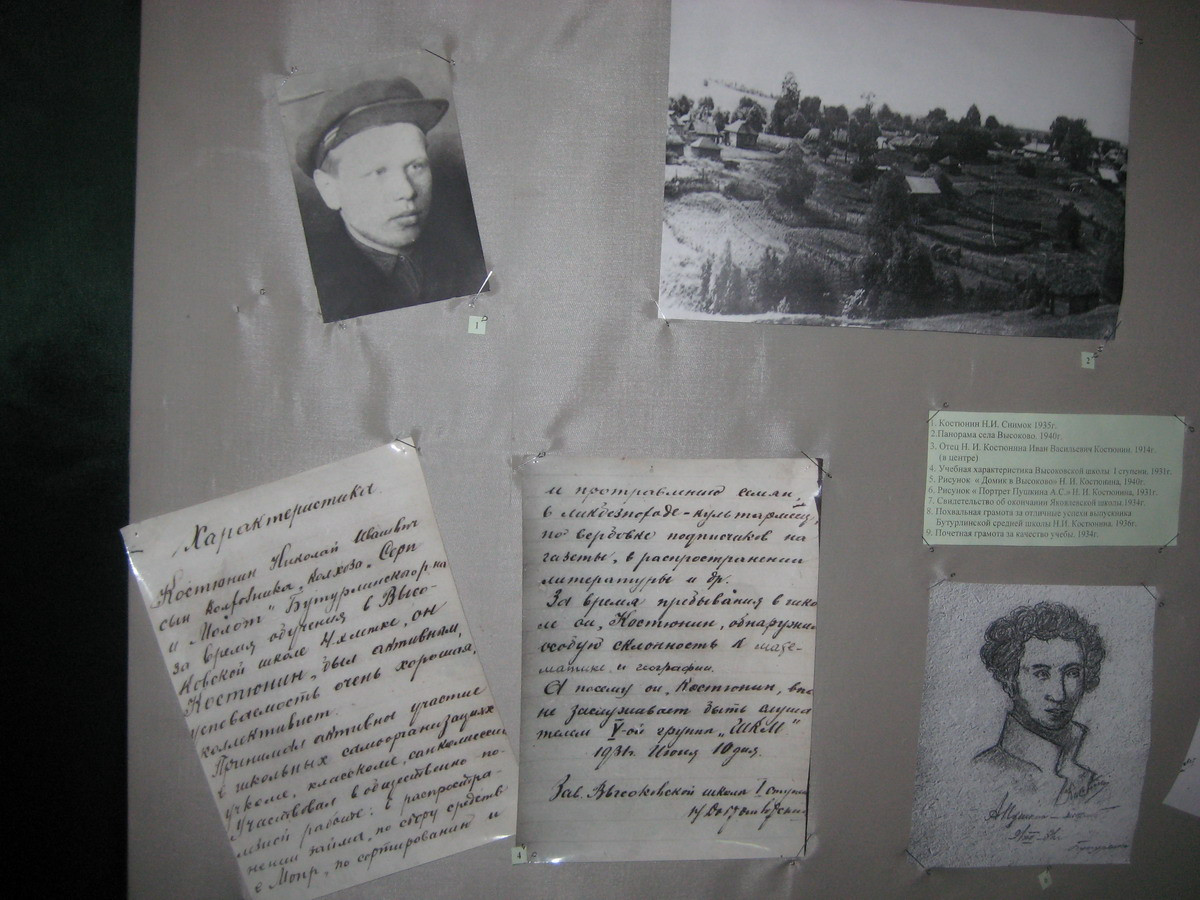 1
2
1. Костюнин Н.И. Снимок 1935г.
2.Панорама села Высоково. 1940г.
3. Отец Н. И. Костюнина Иван Васильевич Костюнин. 1914г.
(в центре)
4. Учебная характеристика Высоковской школы I ступени. 1931г.
5. Рисунок « Домик в Высоково» Н. И. Костюнина, 1940г.
6. Рисунок « Портрет Пушкина А.С.» Н. И. Костюнина, 1931г.
7. Свидетельство об окончании Яковлевской школы 1934г.
8. Похвальная грамота за отличные успехи выпускника
Бутурлинской средней школы Н.И. Костюнина. 1936г.
9. Почетная грамота за качество учебы. 1934г.
Характеристика
Костюнин Николай Иванович
сын колхозника колхоза "Серп
и Молот" Бутурлинского р-на
за время обучения в Высо-
ковской школе 4х летке, он
Костюнин, был активным,
успеваемость очень хорошая,
коллективист.
Принимал активное участие
в школьных самоорганизациях
учкоме, класскоме, санкомиссии
Участвовал в общественно по-
лезной работе: в распростра-
нении займа, по сбору средств
в Мопр, по сортированию и
и протравлению семян,
в ликбезпоходе - культармеец,
по вербовке подписчиков на
газеты, в распространении
литературы и др.
За время пребывания в шко
ле он, Костюнин, обнаружил
особую склонность к мате-
матике и географии.
А посему он, Костюнин, впол
не заслуживает быть слуша
телем V-ой группы „ШКМ"
1931г. Июня 10 дня.
Зав. Высоковской школы I ступе
4
6